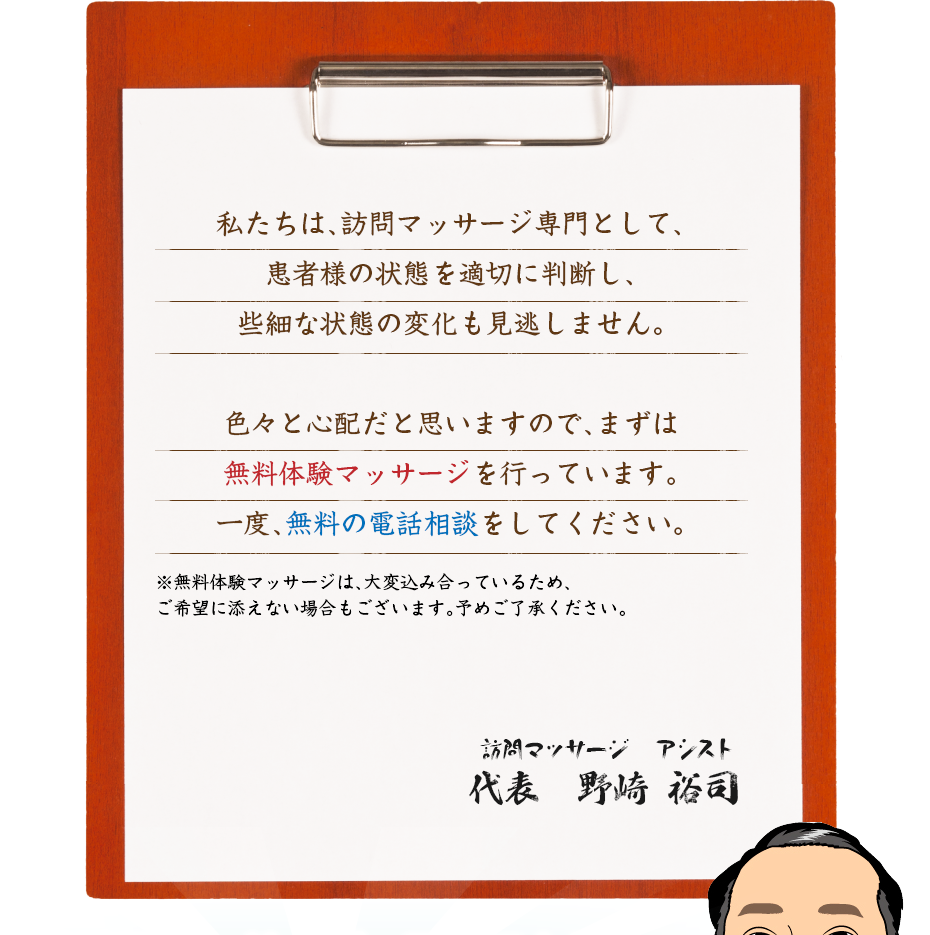 私たちは、訪問マッサージ専門として、
患者様の状態を適切に判断し、
些細な状態の変化も見逃しません。
色々と心配だと思いますので、まずは
無料体験マッサージを行っています。
一度、無料の電話相談をしてください。
※無料体験マッサージは、大変込み合っているため、
ご希望に添えない場合もございます。予めご了承ください。
訪問マッサージ　アシスト
代表　野崎 裕司